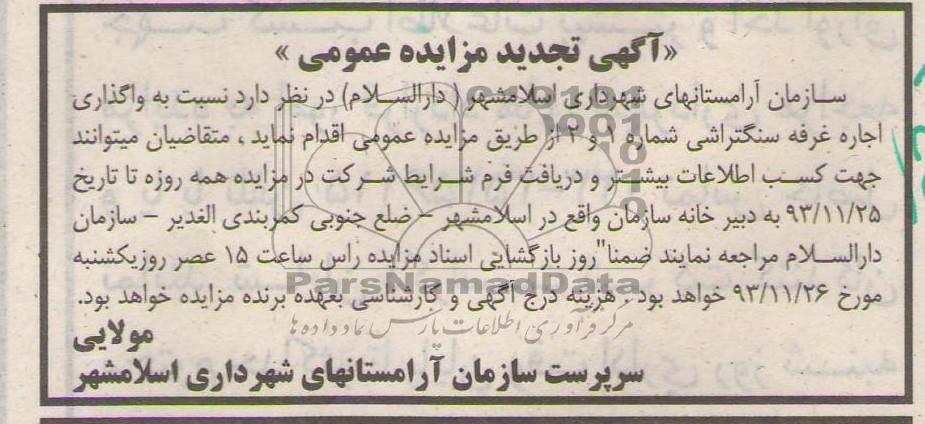 «آگهی تجدید مزایده عمومی»
سازمان آرامستانهای شهرداری اسلامشهر ( دارالسلام) در نظر دارد نسبت به واگذاری
اجاره غرفه سنگتراشی شماره ۱ و ۲ از طریق مزایده عمومی اقدام نماید ، متقاضیان میتوانند
جهت کسب اطلاعات بیشتر و دریافت فرم شرایط شرکت در مزایده همه روزه تا تاریخ
۹۳/۱۱/۲۵ به دبیر خانه سازمان واقع در اسلامشهر – ضلع جنوبی کمربندی الغدیر – سازمان
دارالسلام مراجعه نمایند ضمنا" روز بازگشایی اسناد مزایده راس ساعت ۱۵ عصر روزیکشنبه
ParsNamadData
مورخ ۹۳/۱۱/۲۶ خواهد بود . هزینه درج آگهی و کارشناسی بعهده برنده مزایده خواهد بود.
مرکز فرآوری اطلاعات پارس نماد داده ها
مولایی
سرپرست سازمان آرامستانهای شهرداری اسلامشهر